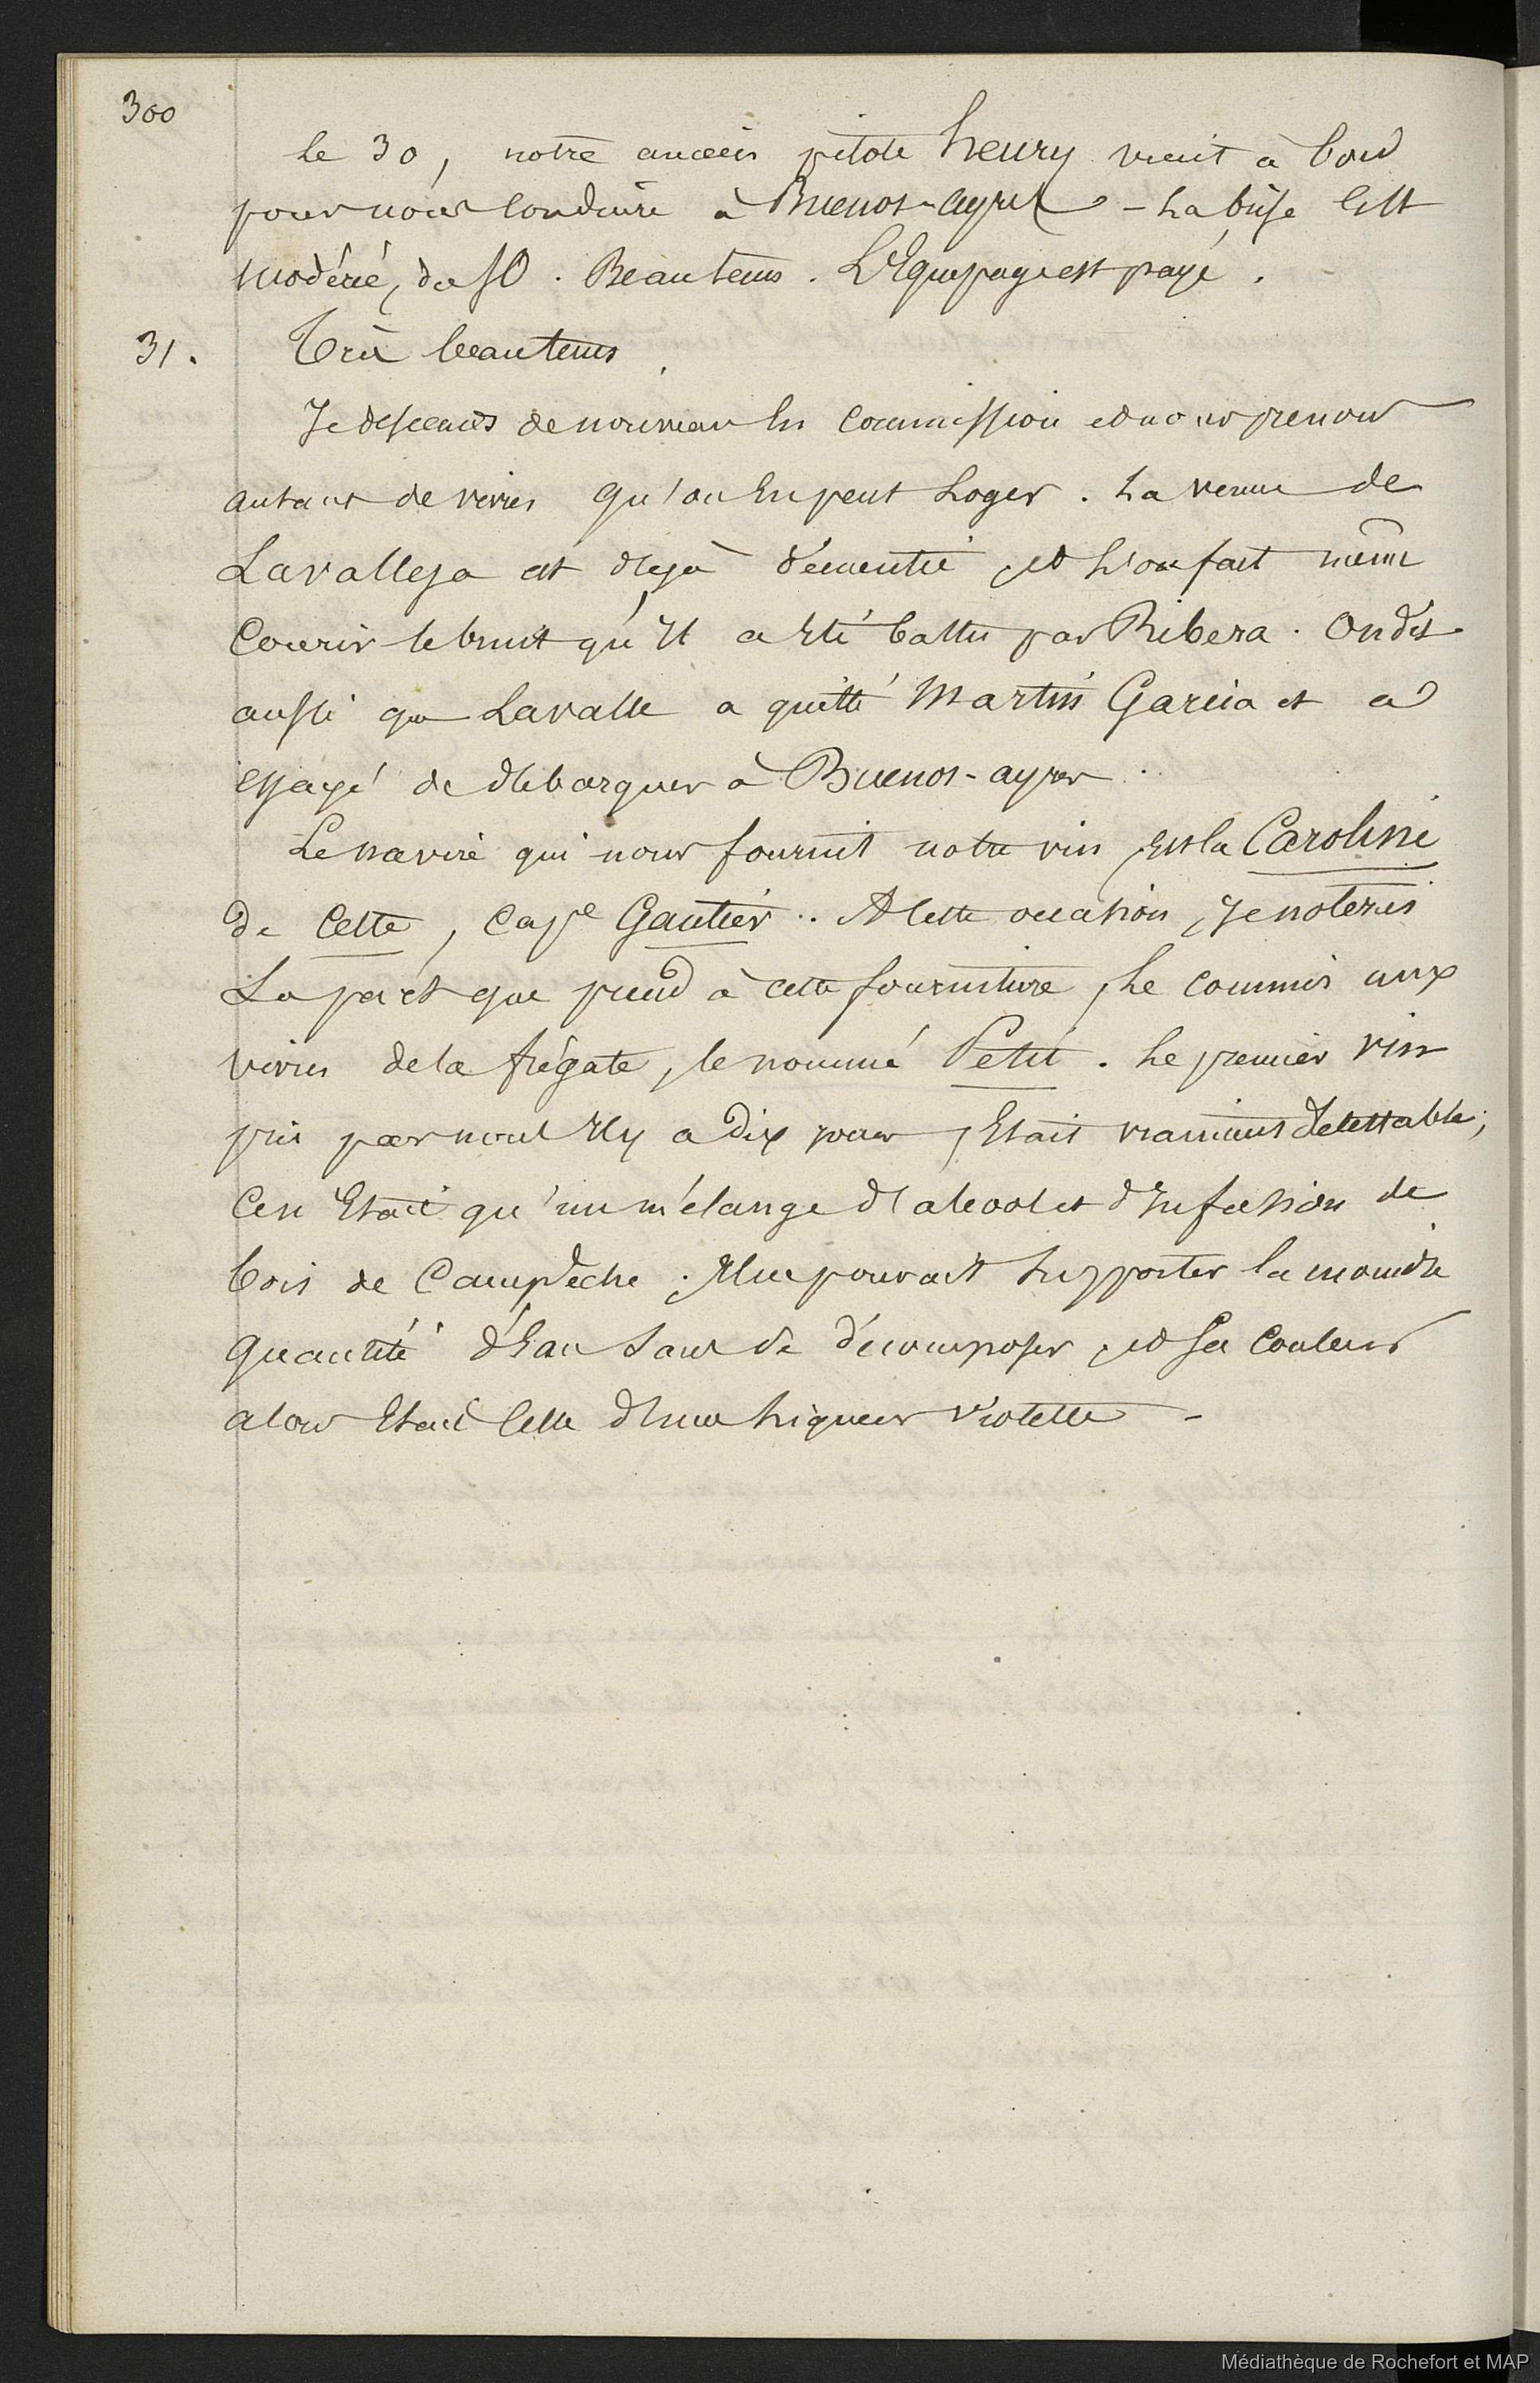 300
le 30, notre ancien pilote henry vient à bord
pour nous conduire à Buenos-ayres - La brise Est
modérée, du SO. Beau tems. L'Equipage est payé.
31. Très beau tems
Je descends de nouveau En Commission et nous prenons
autant de vivres qu'on En peut Loger. La venue de
Lavalleja est déjà démentie, et L'on fait même
Courir le bruit qu'Il a Eté battu par Ribera. On dit
aussi que Lavalle a quitté Martin Garcia et a
essayé de débarquer à Buenos-ayres.
Le navire qui nous fournit notre vin, Est la Caroline
de Cette, Cape Gautier.. A Cette occasion, Je noterai
La part que prend à cette fourniture, Le commis aux
vivres de la frégate, le nommé Petit. Le premier vin
pris par nous Il y a dix jours, Etait vraiment détestable;
Ce n'Etait qu'un mélange d'alcool et d'Infusion de
bois de Campêche. Il ne pouvait Supporter la moindre
quantité d'Eau Sans Se décomposer, et Sa Couleur
alors Etait Celle d'une Liqueur Violette -
Médiathèque de Rochefort et MAP